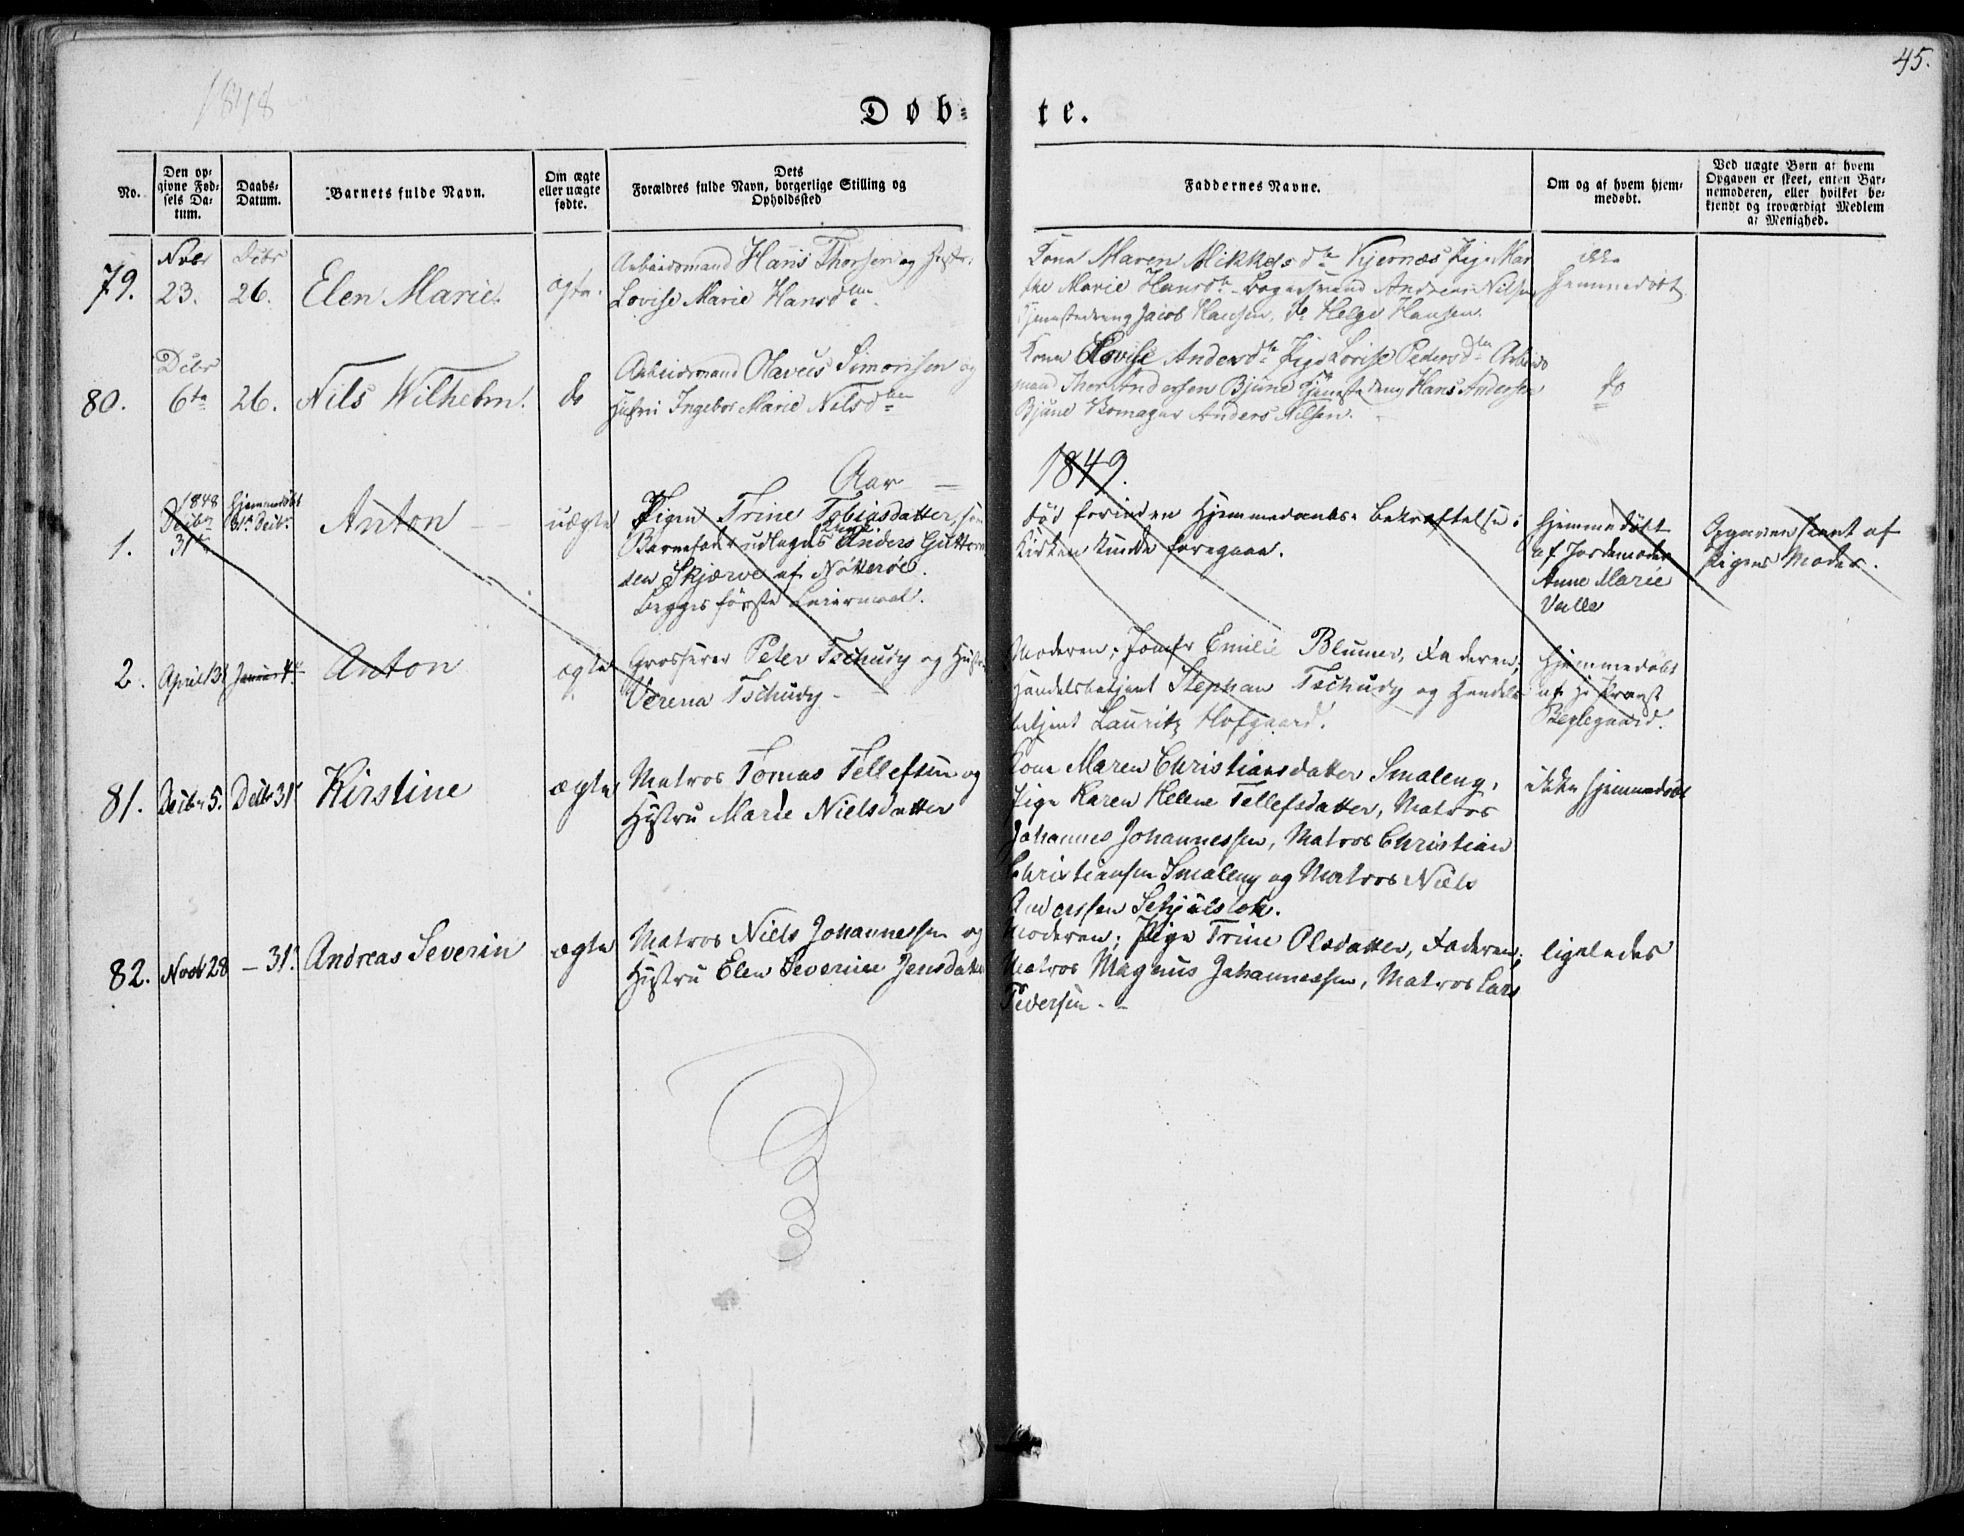 45.
1848
Døb-
te.
No.
Den op-
givne Fød-
sels Da-
tum.
Daabs-
Datum.
Barnets fulde Navn.
Om ægte
eller uægte
fødte.
Dets
Forældres fulde Navn, borgerlige Stilling og
Opholdssted
Faddernes Navne.
Om og af hvem hjem-
medøbt.
Ved uægte Børn af hvem
Opgaven er skeet, enten Bar-
nemoderen, eller hvilket be-
kjendt og troværdigt Medlem
af Menighed.
79.
Nvbr
23.
Decbr
26.
Elen Marie.
ægte.
Arbeidsmand Hans Thorsen og Hustr.
Lovise Marie Hansdtter.
Kone Maren Mikkelsdtr Kjernæs Pige Mar
the Marie Hansdtr Andreas Nilsen
Tjenestedreng Jacob Hansen, do Helge Hansen.
ikke
hjemmedøbt
80.
Decbr
6te
26.
Nils Wilhelm.
do
Arbeidsmand Olavus Simonsen og
Hustru Ingebor Marie Nilsdtter
Kone Lovise Andersdtr Pige Lovise Pedersdtr Arbeids
mand Thor Andersen Bjune Tjenestedreng Hans Andersen
Bjune Skomager Anders Nilsen.
do
Aar
1849.
1.
1848
Decbr
31te
Hjemmedøbt
31te Decbr.
Anton
uægte
Pigen Trine Tobiasdatter, som
Barnefader udlagdes Anders Guttorm
sen Skjærve af Nøtterøe.
Begges første Leiermaal.
død forinden Hjemmedaabs-Bekræftelse i
Kirken kunde foregaae.
Hjemmedøbt
af Jordemoder
Anne Marie
Valle
Opgaven skeet af
Pigens Moder.
2.
April 13
Januar 4de
Anton
ægte
Grosserer Peter Tschudy og Hustru
Verena Tschudy
Moderen, Jomfr Emilie Blumer, Faderen,
Handelsbetjent Stephan Tschudy og Handels
betjent Lauritz Hofgaard.
Hjemmedøbt
af Hr Provst
81.
Decbr 5.
Decbr 31te
Kirstine
ægte
Matros Tomas Tellefsen og
Hustru Marie Nielsdatter
Kone Maren Christiansdatter Smaleng,
Pige Karen Helene Tellefsdatter, Matros
Johannes Johannessen, Matros Christian
Christiansen Smaleng og Matros Niels
Anderssen
ikke hjemmedøbt
82.
Novbr 28
- 31te
Andreas Severin
ægte
Matros Niels Johannessen og
Hustru Elen Severine Jensdatter
Moderen; Pige Trine Olsdatter, Faderen;
Matros Magnus Johannessen, Matros Lars
Pedersen.
ligeledes